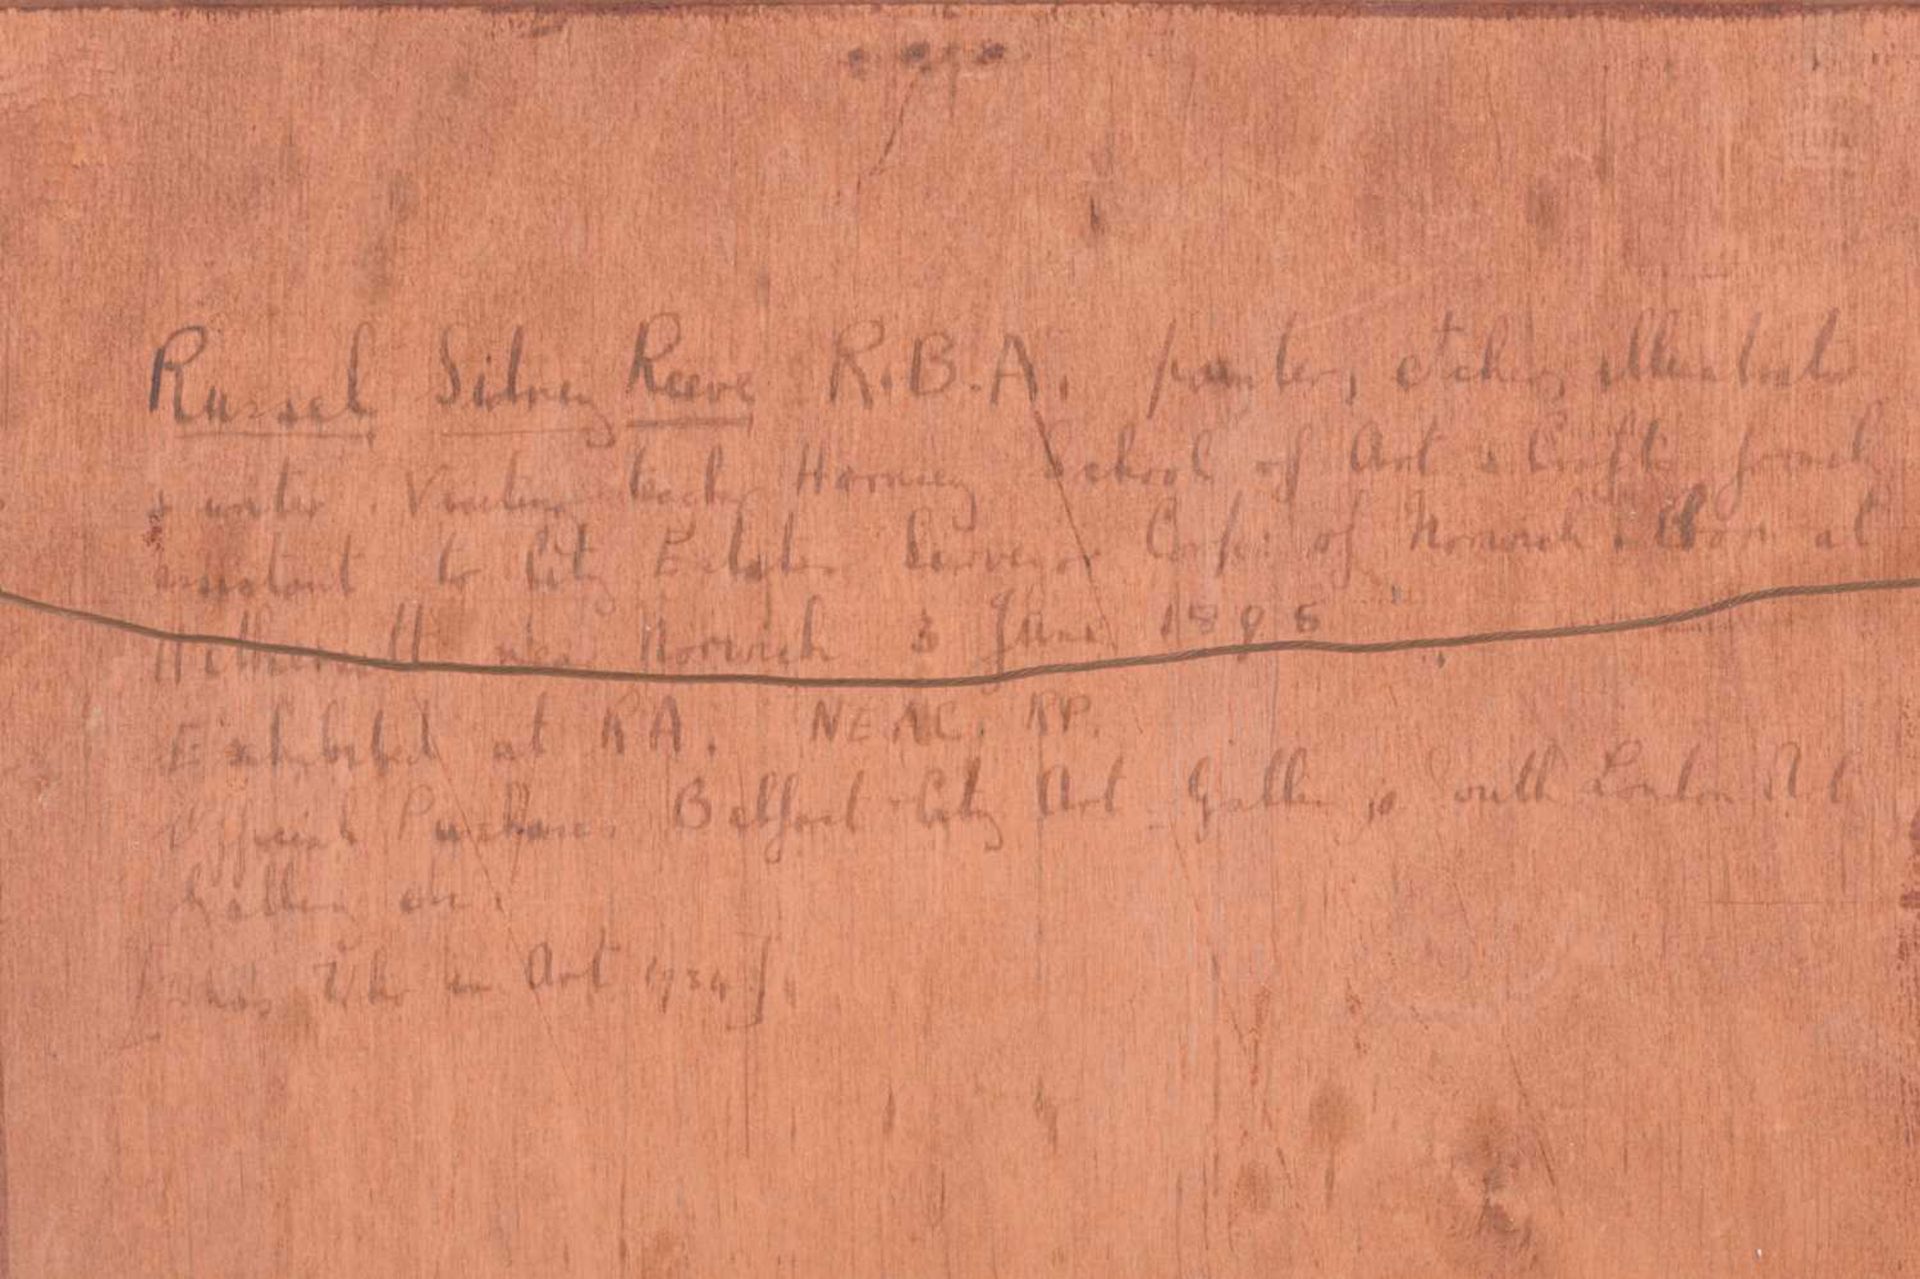 Russel Sidney Reeve R.B.A. painter, etcher, illustrator
& writer. Visiting teacher Hornsey School of Art & Crafts formerly
assistant to City Estates Surveyor Corpn of Norwich. Born at
Hethersett near Norwich 3 June 1895
Exhibited at RA. NEAC. RP.
Official Purchases Belfast City Art Gallery, South London Art
Gallery etc.
[Who's Who in Art 1934].